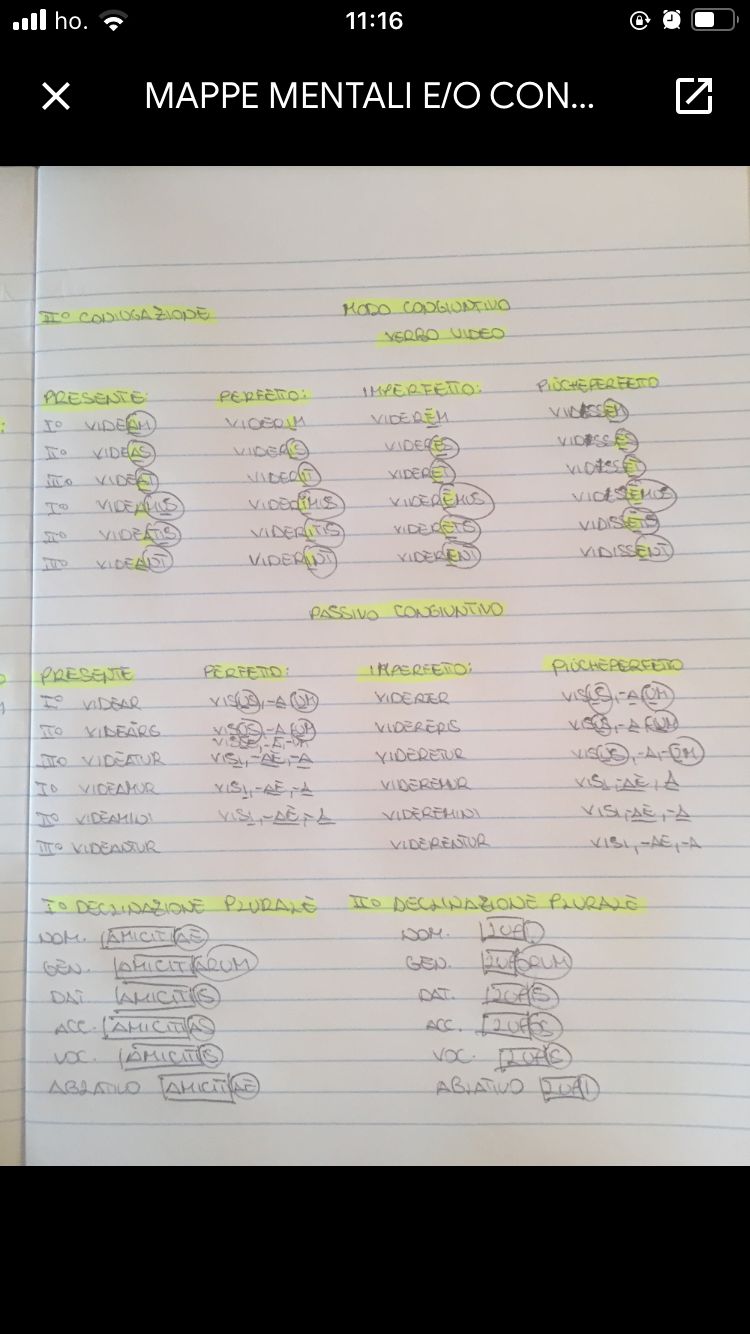 ho. 11:16
MAPPE MENTALI E/O CON...
IIº CONIUGAZIONE MODO CONGIUNTIVO
VERBO VIDEO
PRESENTE: PERFETTO: IMPERFETTO: PIÙCHEPERFETTO
Iº VIDEAM VIDERIM VIDERĒM VIDISSEM
IIº VIDEAS VIDERIS VIDERES VIDISSES
IIIº VIDEAT VIDERIT VIDERET VIDISSET
Iº VIDEAMUS VIDERIMUS VIDEREMUS VIDISSEMUS
IIº VIDEATIS VIDERITIS VIDERETIS VIDISSETIS
IIIº VIDEANT VIDERINT VIDERENT VIDISSENT
PASSIVO CONGIUNTIVO
PRESENTE PERFETTO: IMPERFETTO: PIÙCHEPERFETTO
Iº VIDEAR VISUS,-A UM VIDERER VISUS,-A UM
IIº VISUS,-A UM VIDERERIS VISUS,-A UM
IIIº VIDEATUR VISI,-AE,-A VIDERETUR VISUS,-A,-UM
Iº VIDEAMUR VISI,-AE,-A VIDEREMUR VISI,-AE,A
IIº VIDEAMINI VISI,-AE,-A VIDEREMINI VISI,-AE,-A
IIIº VIDEANTUR VIDERENTUR VISI,-AE,-A
Iº DECLINAZIONE PLURALE IIº DECLINAZIONE PLURALE
NOM. AMICITIAE NOM. LUPI
GEN. AMICITIARUM GEN. LUPORUM
DAT. AMICITIS DAT. LUPIS
ACC. AMICITIAS ACC. LUPOS
VOC. AMICITIS VOC. LUPIS
ABLATIVO AMICITIAE ABLATIVO LUPI